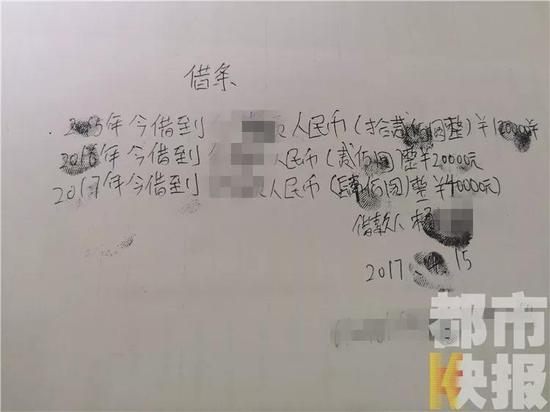 借条
2015年今借到 人民币(拾贰佰圆整)¥12000元
2016年今借到 人民币(贰佰圆整¥20000元
2017年今借到 人民币(肆佰圆整¥40000元)
借款人 杨
2017 4 15
都市
快报